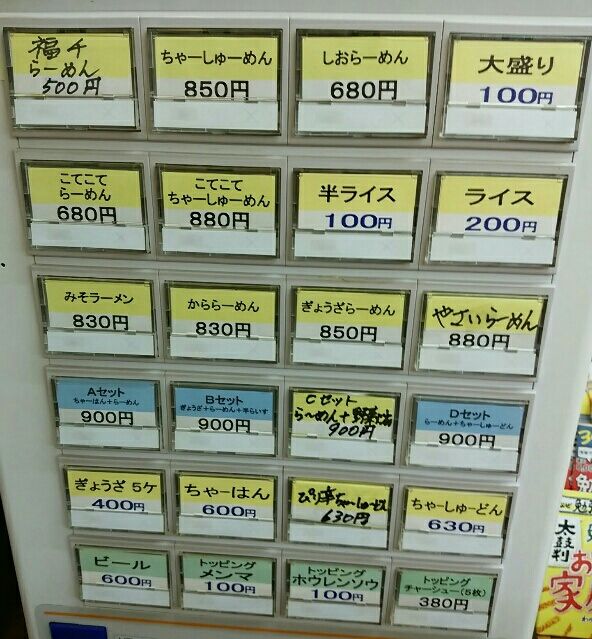 福チ
らーめん
500円
ちゃーしゅーめん
850円
しおらーめん
680円
大盛り
100円
こてこて
らーめん
680円
こてこて
ちゃーしゅーめん
880円
半ライス
100円
ライス
200円
みそラーメン
830円
かららーめん
830円
ぎょうざらーめん
850円
やさいらーめん
880円
Aセット
ちゃーはん+らーめん
900円
Bセット
ぎょうざ+らーめん+半らいす
900円
Cセット
らーめん+野菜
900円
Dセット
らーめん+ちゃーしゅーどん
900円
ぎょうざ 5ケ
400円
ちゃーはん
600円
ぴり辛ちゃーしゅーどん
630円
ちゃーしゅーどん
630円
ビール
600円
トッピング
メンマ
100円
トッピング
ホウレンソウ
100円
トッピング
チャーシュー(5枚)
380円
太鼓判
お
家